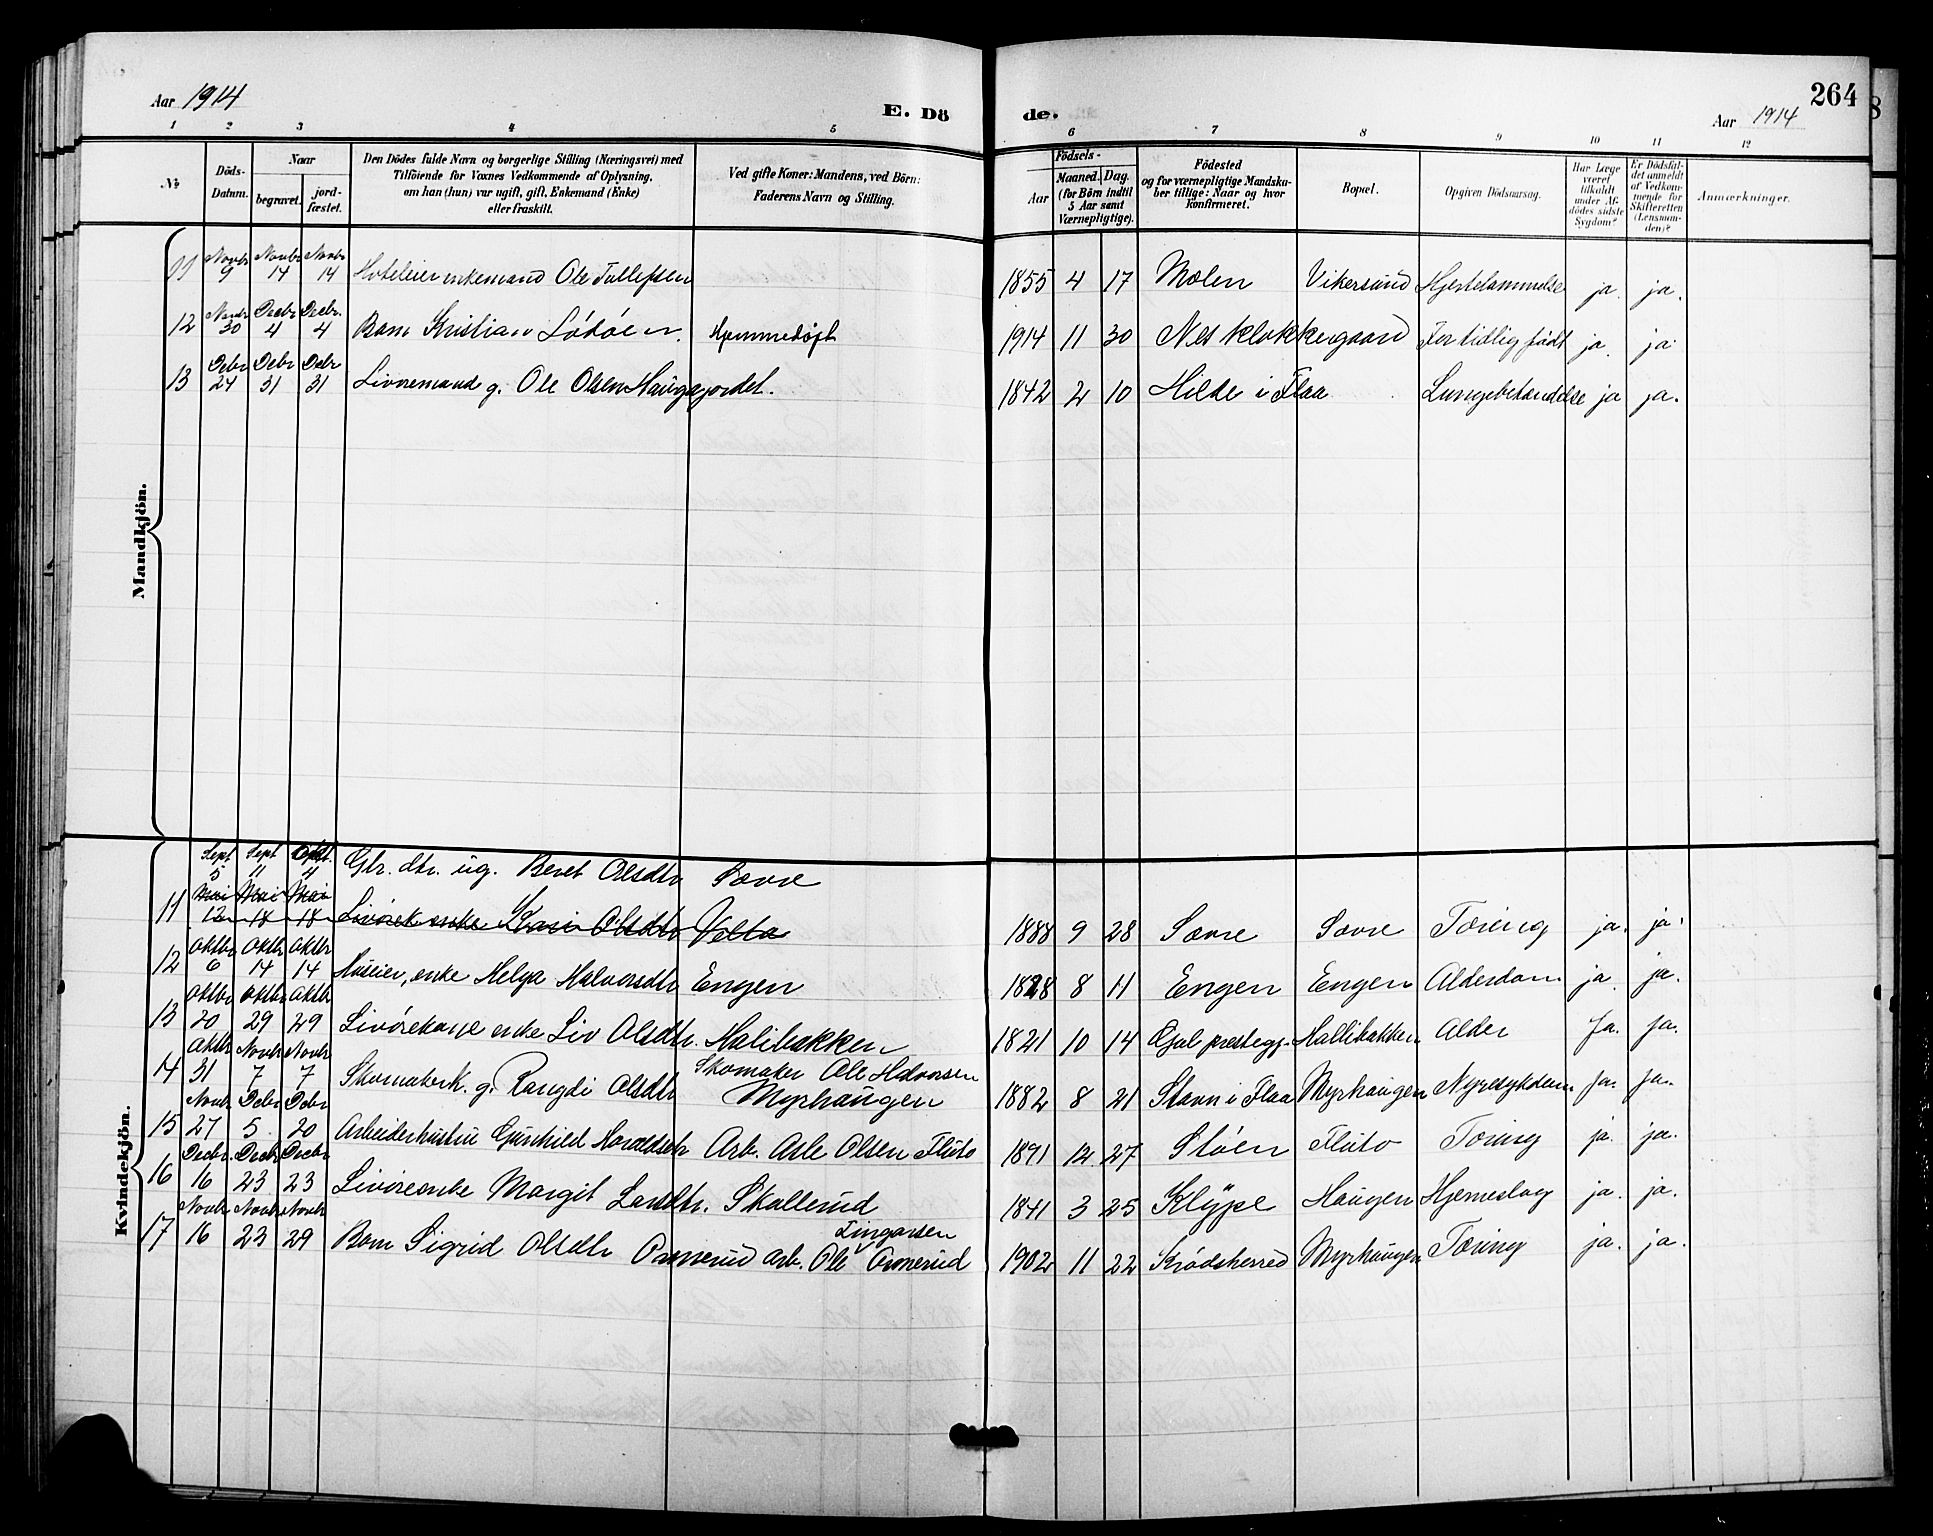 Aar 1914
E. Dö
de.
Aar 1914
264
1 2 3 4 5 6 7 8 9 10 11 12
№
Döds-Datum.
Naar
begravet.
jord-fæstet.
Den Dödes fulde Navn og borgerlige Stilling (Næringsvei) med
Tilföiende for Voxnes Vedkommende af Oplysning,
om han (hun) var ugift, gift, Enkemand (Enke)
eller fraskilt.
Ved gifte Koner: Mandens, ved Börn:
Faderens Navn og Stilling.
Födsels-
Aar
Maaned.
Dag.
(for Börn indtil
5 Aar samt
Værnepligtige).
Födested
og for værnepligtige Mandska-
ber tillige: Naar og hvor
Konfirmeret.
Bopæl.
Opgiven Dödsaarsag.
Har Læge
været
tilkaldt
under Af-
dödes sidste
Sygdom?
Er Dödsfal-
det anmeldt
af Vedkom-
mende for
Skifteretten
(Lensman-
den)?
Anmærkninger.
Mandkjön.
11 Novbr 9 Novbr 14 Novbr 14 Hoteleier enkemand Ole Tollefsen 1855 4 17 Molen Vikersund Hjertelammelse ja. ja.
12 Novbr 30 Decbr 4 Decbr. 4 Barn Kristian Lödöen. Hjemmedöpt 1914 11 30 Nes klokkergaard For tidlig födt ja. ja
13 Debr 24 Debr 31 Debr 31 Livöremand g. Ole Olsen Haugajordet. 1842 2 10 Hilde i Flaa Lungebetændelse ja ja.
Kvindekjön.
Sept 5 Sept 11 Oktbr. 4 Gbr. dtr. ug. Beret Olsdtr Sævre
11 Mai 12 Mai 18 Mai 18 Livörek enke Kari Olsdtr Vella 1888 9 28 Sævre Sævre Tæring ja. ja.
12 Oktbr 6 Oktbr 14 Oktbr 14 Huseier, enke Helga Halvorsdtr Engen 1828 8 11 Engen Engen Alderdom ja. ja.
13 Oktbr 20 Oktbr 29 Oktbr 29 Livörekone enke Liv Olsdtr. Halibakken 1821 10 14 Gol prestegj. Hallibakken Alder Ja. ja.
14 Oktbr 31 Novbr 7 Novbr 7 Skomakerk. g. Rangdi Olsdtr Skomaker Ole Halvorsen
Myrhaugen 1882 8 21 Stavn i Flaa Myrhaugen Nyresykdom Ja. ja.
15 Novbr 27 Debr 5. Debr 20 Arbeiderhustru Gunhild Haraldsdtr Arb. Asle Olsen Fluto 1891 12 27 Stöen Fluto Tæring ja. ja.
16 Decbr 16 Decbr 23 Decbr 23 Livöreenke Margit Larsdtr. Skallerud 1841 3 25 Klype Haugen Hjerneslag ja. ja.
17 Novbr 16 Novbr 23 Novbr 29 Barn Sigrid Olsdtr Ormerud Arb. Ole Ormerud 1902 11 22 Krödsherred Myrhaugen Tæring ja. ja.